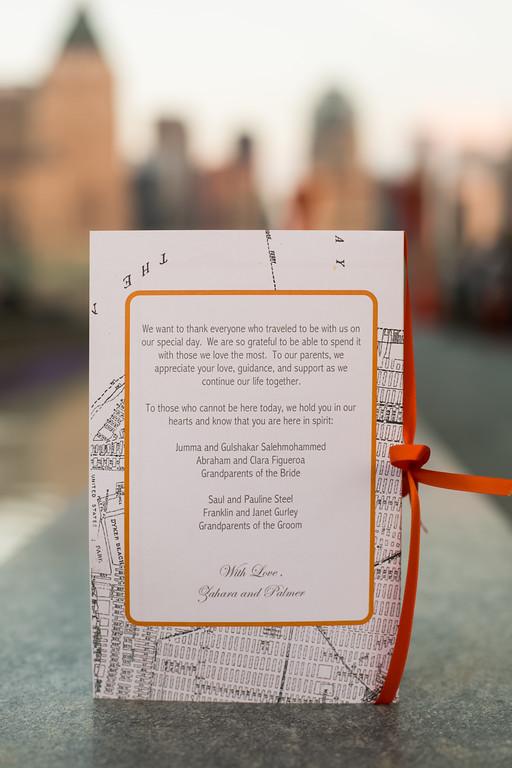 THE
AY
We want to thank everyone who traveled to be with us on
our special day. We are so grateful to be able to spend it
with those we love the most. To our parents, we
appreciate your love, guidance, and support as we
continue our life together.
To those who cannot be here today, we hold you in our
hearts and know that you are here in spirit:
Jumma and Gulshakar Salehmohammed
Abraham and Clara Figueroa
Grandparents of the Bride
Saul and Pauline Steel
Franklin and Janet Gurley
Grandparents of the Groom
With Love,
Zahara and Palmer
UNITED STATES
DYKER BEACH
PARK